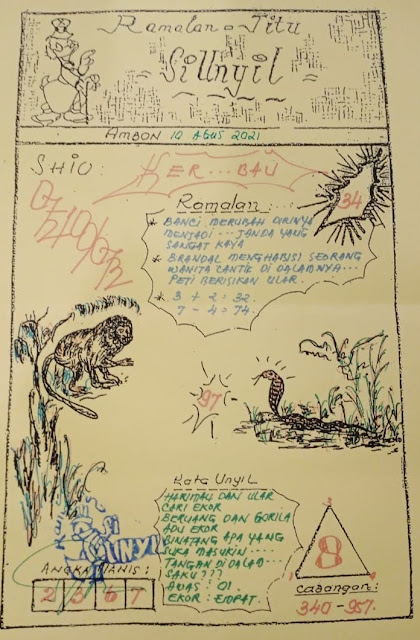 Ramalan Jitu
Si Unyil
AMBON 10 AGUS 2021
SHIO:
KER...BAU
Ramalan:
34
* BANCI MERUBAH DIRINYA
MENJADI... JANDA YANG
SANGAT KAYA
* BRANDAL MENGHABISI SEORANG
WANITA CANTIK DI DALAMNYA...
PETI BERISIKAN ULAR.
* 3 + 2 = 32.
7 - 4 = 74.
97
Kata Unyil
HARIMAU DAN ULAR
CARI EKOR
BERUANG DAN GORILA
ADU EKOR
BINATANG APA YANG
SUKA MASUKIN....
TANGAN DI DALAM...
SAKU???
AWAS: 01.
EKOR: EMPAT.
SI
UNYIL
ANGKA MANIS:
2 3 6 7
3
8
CADANGAN:
340 - 957.